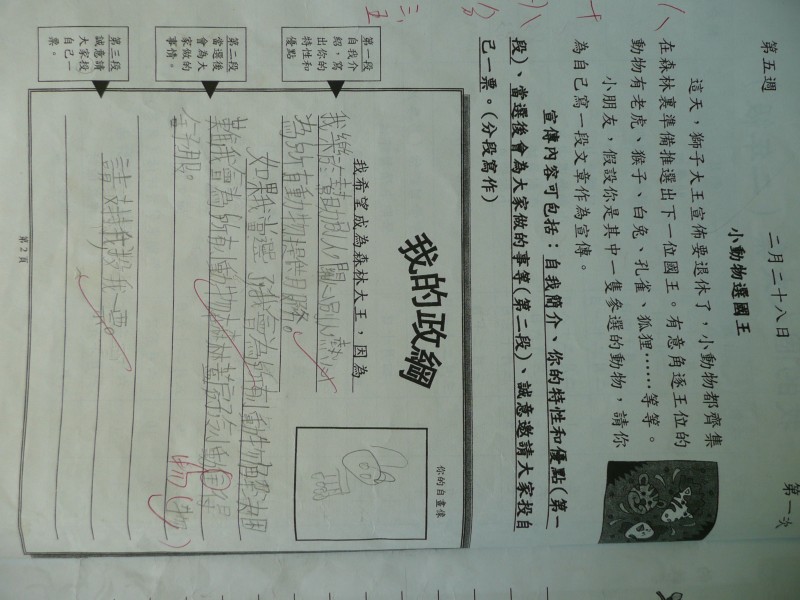 第五週 二月二十八日 第一次
小動物選國王
這天，獅子大王宣佈要退休了，小動物都齊集
在森林裏準備推選出下一位國王。有意角逐王位的
動物有老虎、猴子、白兔、孔雀、狐狸……等等。
小朋友，假設你是其中一隻參選的動物，請你
為自己寫一段文章作為宣傳。
宣傳內容可包括：自我簡介、你的特性和優點(第一
段)、當選後會為大家做的事等(第二段)、誠意邀請大家投自
己一票。(分段寫作)
我的政綱
你的自畫像
第一段
自我介
紹，寫
出你的
特性和
優點
我希望成為森林大王，因為
我樂於幫助別人關心別人熱心
為所有動物提供服務。
第二段
當選後
會為大
家做的
事情。
如果我當選了我會為所有動物解決困
難我會為所有動物
物(物)
第三段
誠意請
大家投
自己一
票。
請支持我投我一票
第2頁